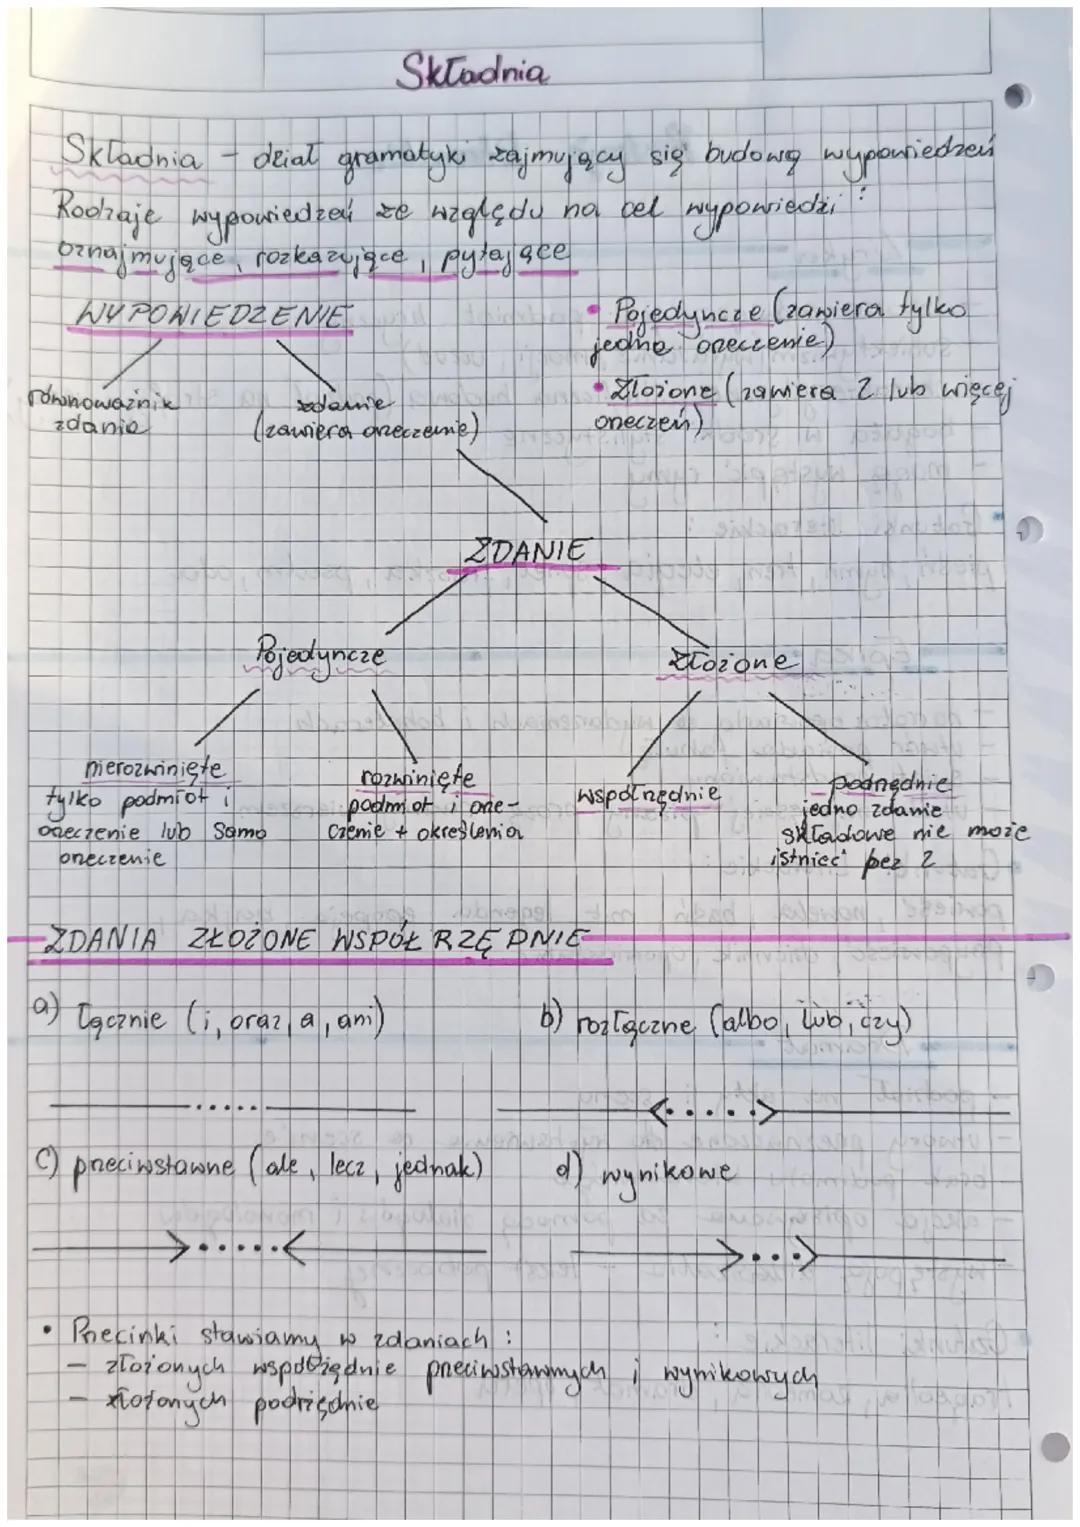 Składnia
Składnia - dział gramatyki zajmujący się budową wypowiedzeń
Rodzaje wypowiedzeń ze względu na cel wypowiedzi:
oznajmujące, rozkazujące, pytające
WYPOWIEDZENIE
równoważnik
zdania
zdanie
(zawiera orzeczenie)
• Pojedyncze (zawiera tylko
jedno orzeczenie)
• Złożone (zawiera 2 lub więcej
orzeczeń)
ZDANIE
Pojedyncze
Złożone
nierozwinięte
tylko podmiot i
orzeczenie lub samo
orzeczenie
rozwinięte
podmiot i orze-
czenie + określenia
współrzędnie
podrzędnie
jedno zdanie
składowe nie może
istnieć bez 2
ZDANIA ZŁOŻONE WSPÓŁRZĘDNIE
a) łącznie (i, oraz, a, ani)
b) rozłączne (albo, lub, czy)
c) przeciwstawne (ale, lecz, jednak)
d) wynikowe
• Przecinki stawiamy w zdaniach:
- złożonych współrzędnie przeciwstawnych i wynikowych
- złożonych podrzędnie